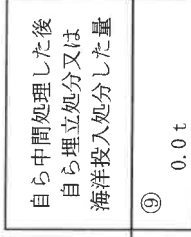 自ら中間処理した後
自ら埋立処分又は
海洋投入処分した量
⑨
0.0t